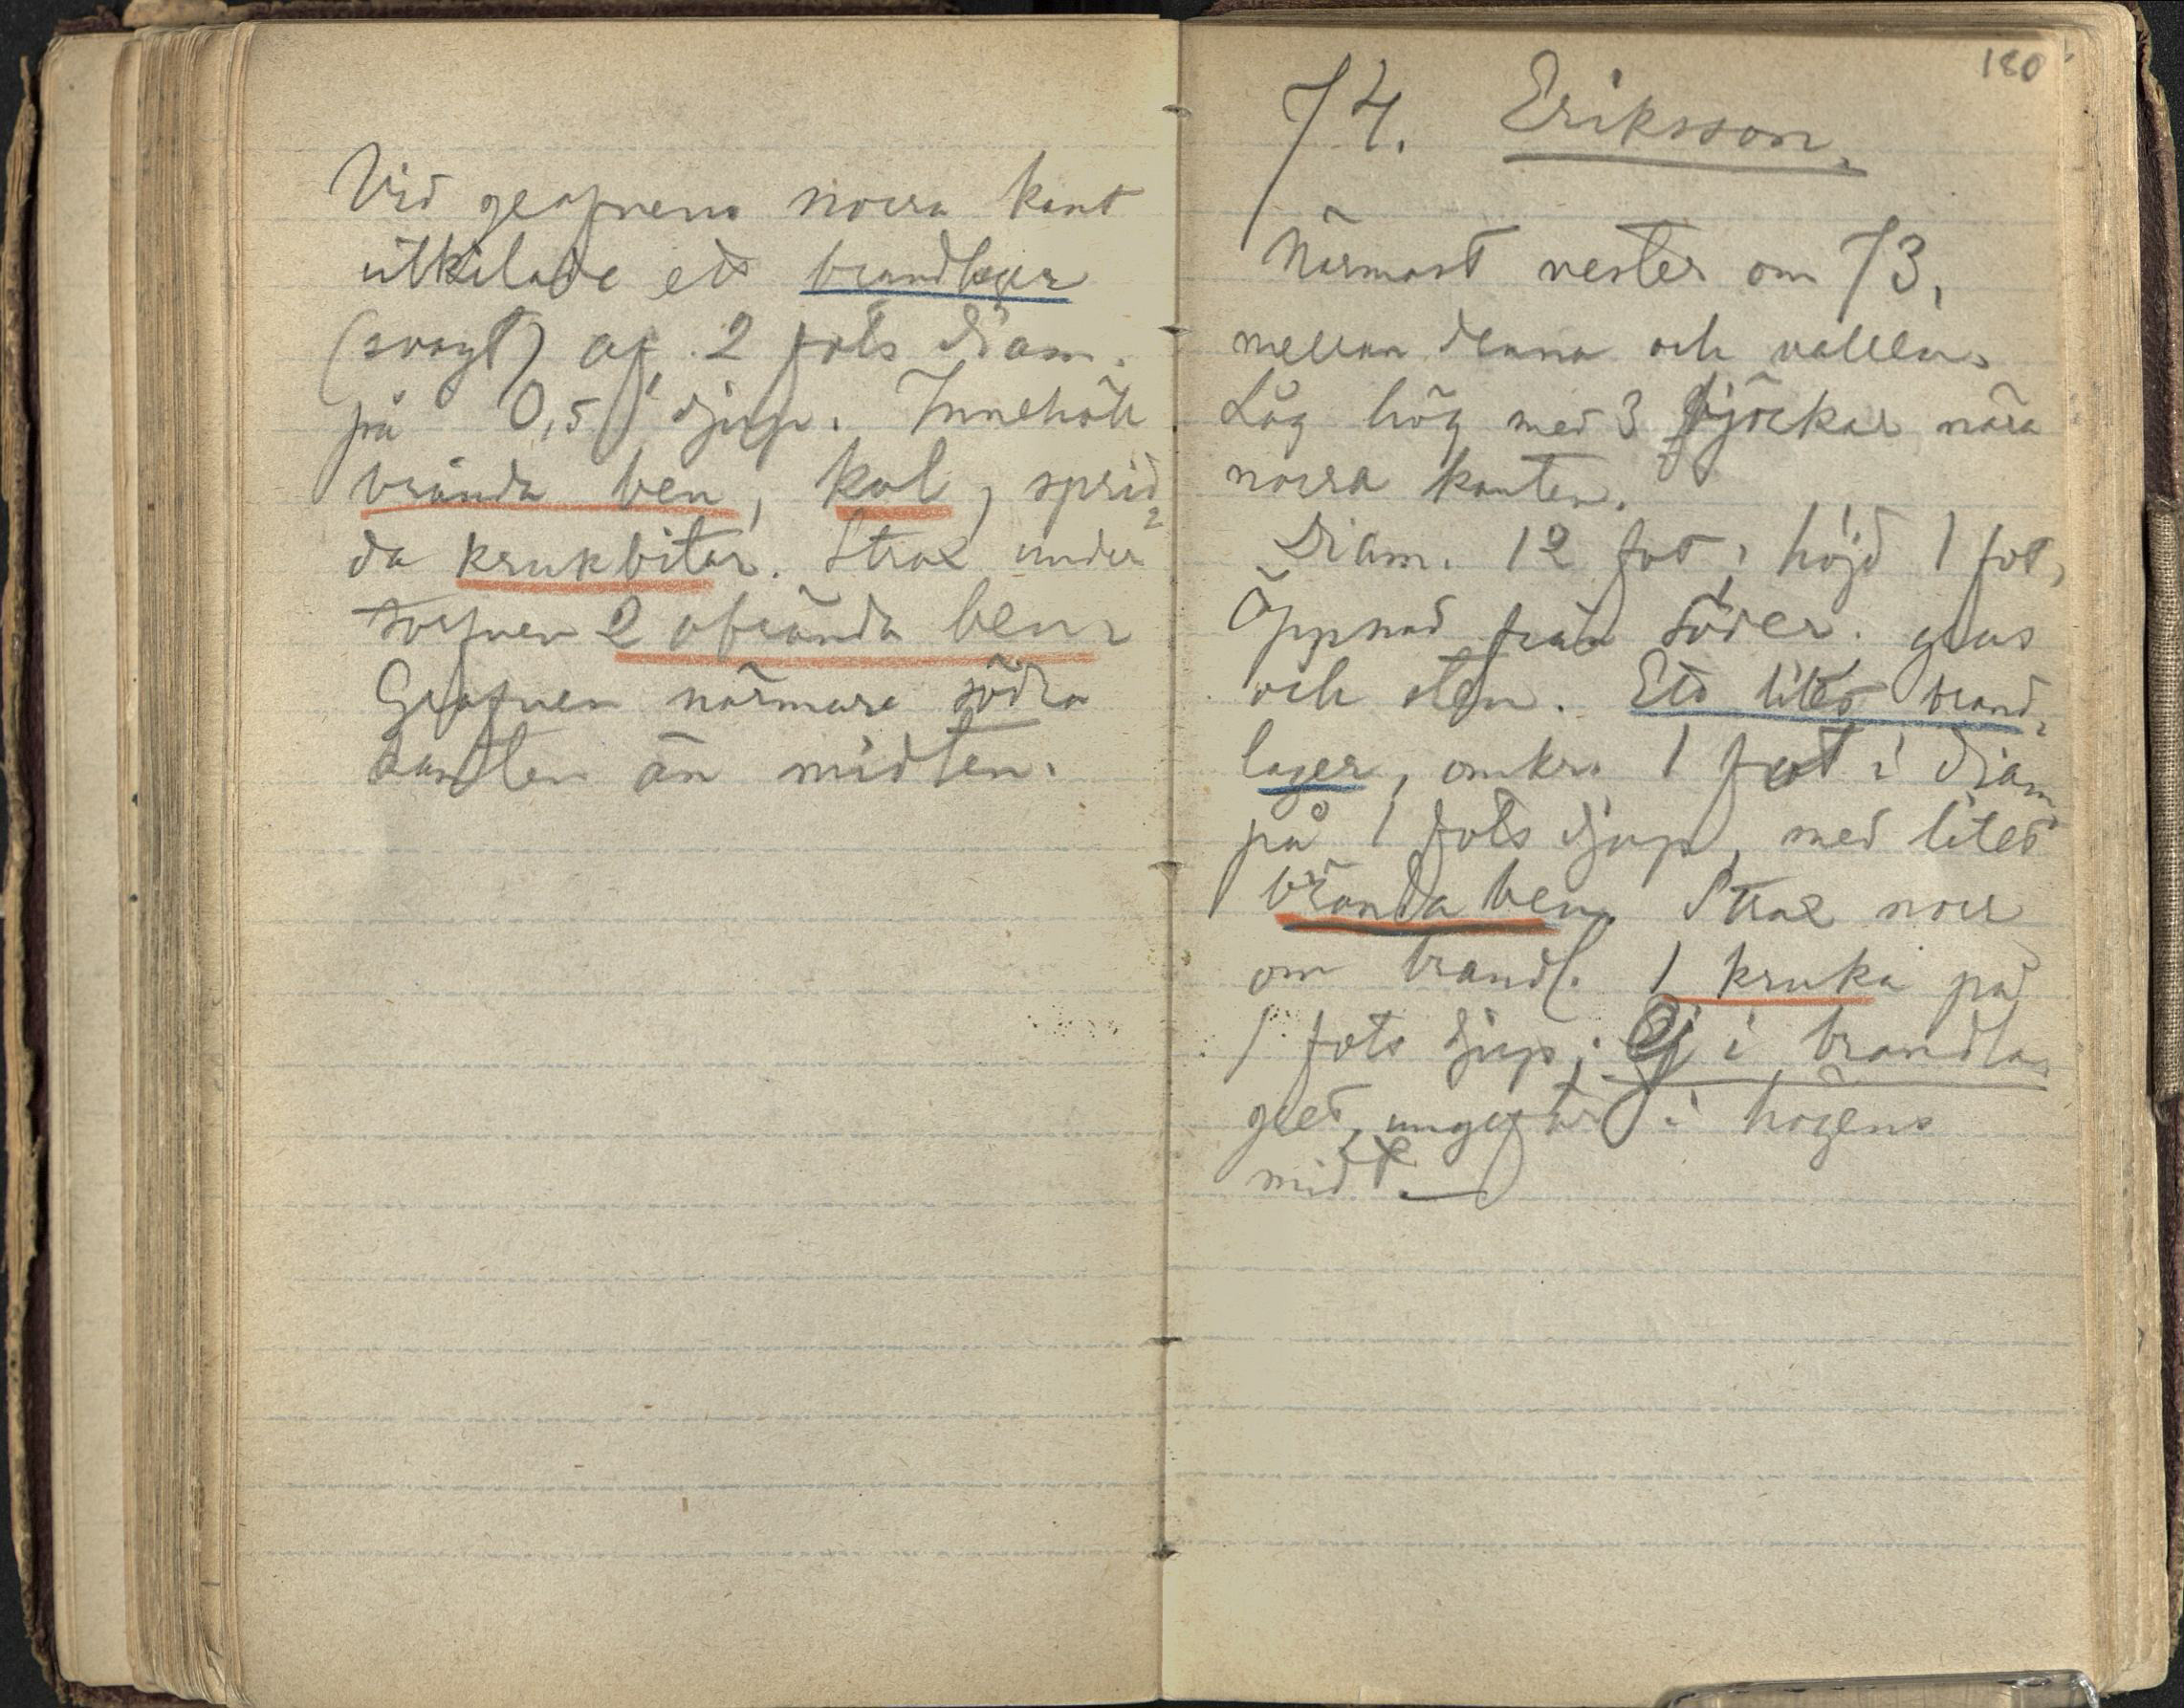 Vid grafvens norra kant
utkilade ett brandlager
(svagt) af 2 fots diam.
på 0,5' djup. Innehöll
brända ben, kol, sprid-
da krukbitar. Strax under
torfven 2 obrända ben.
Grafven närmare södra
kanten än midten.
180
74. Eriksson.
Närmast vester om 73,
mellan denna och vallen.
Låg hög med 3 björkar nära
norra kanten.
Diam. 12 fot, höjd 1 fot,
Öppnad från söder. grus
och sten. Ett litet brand-
lager, omkr. 1 fot i diam
på 1 fots djup, med litet
brända ben. Strax norr
om brandl. 1 kruka på
1 fots djup; Ej i brandla-
gret, ungefär i högens
midt.